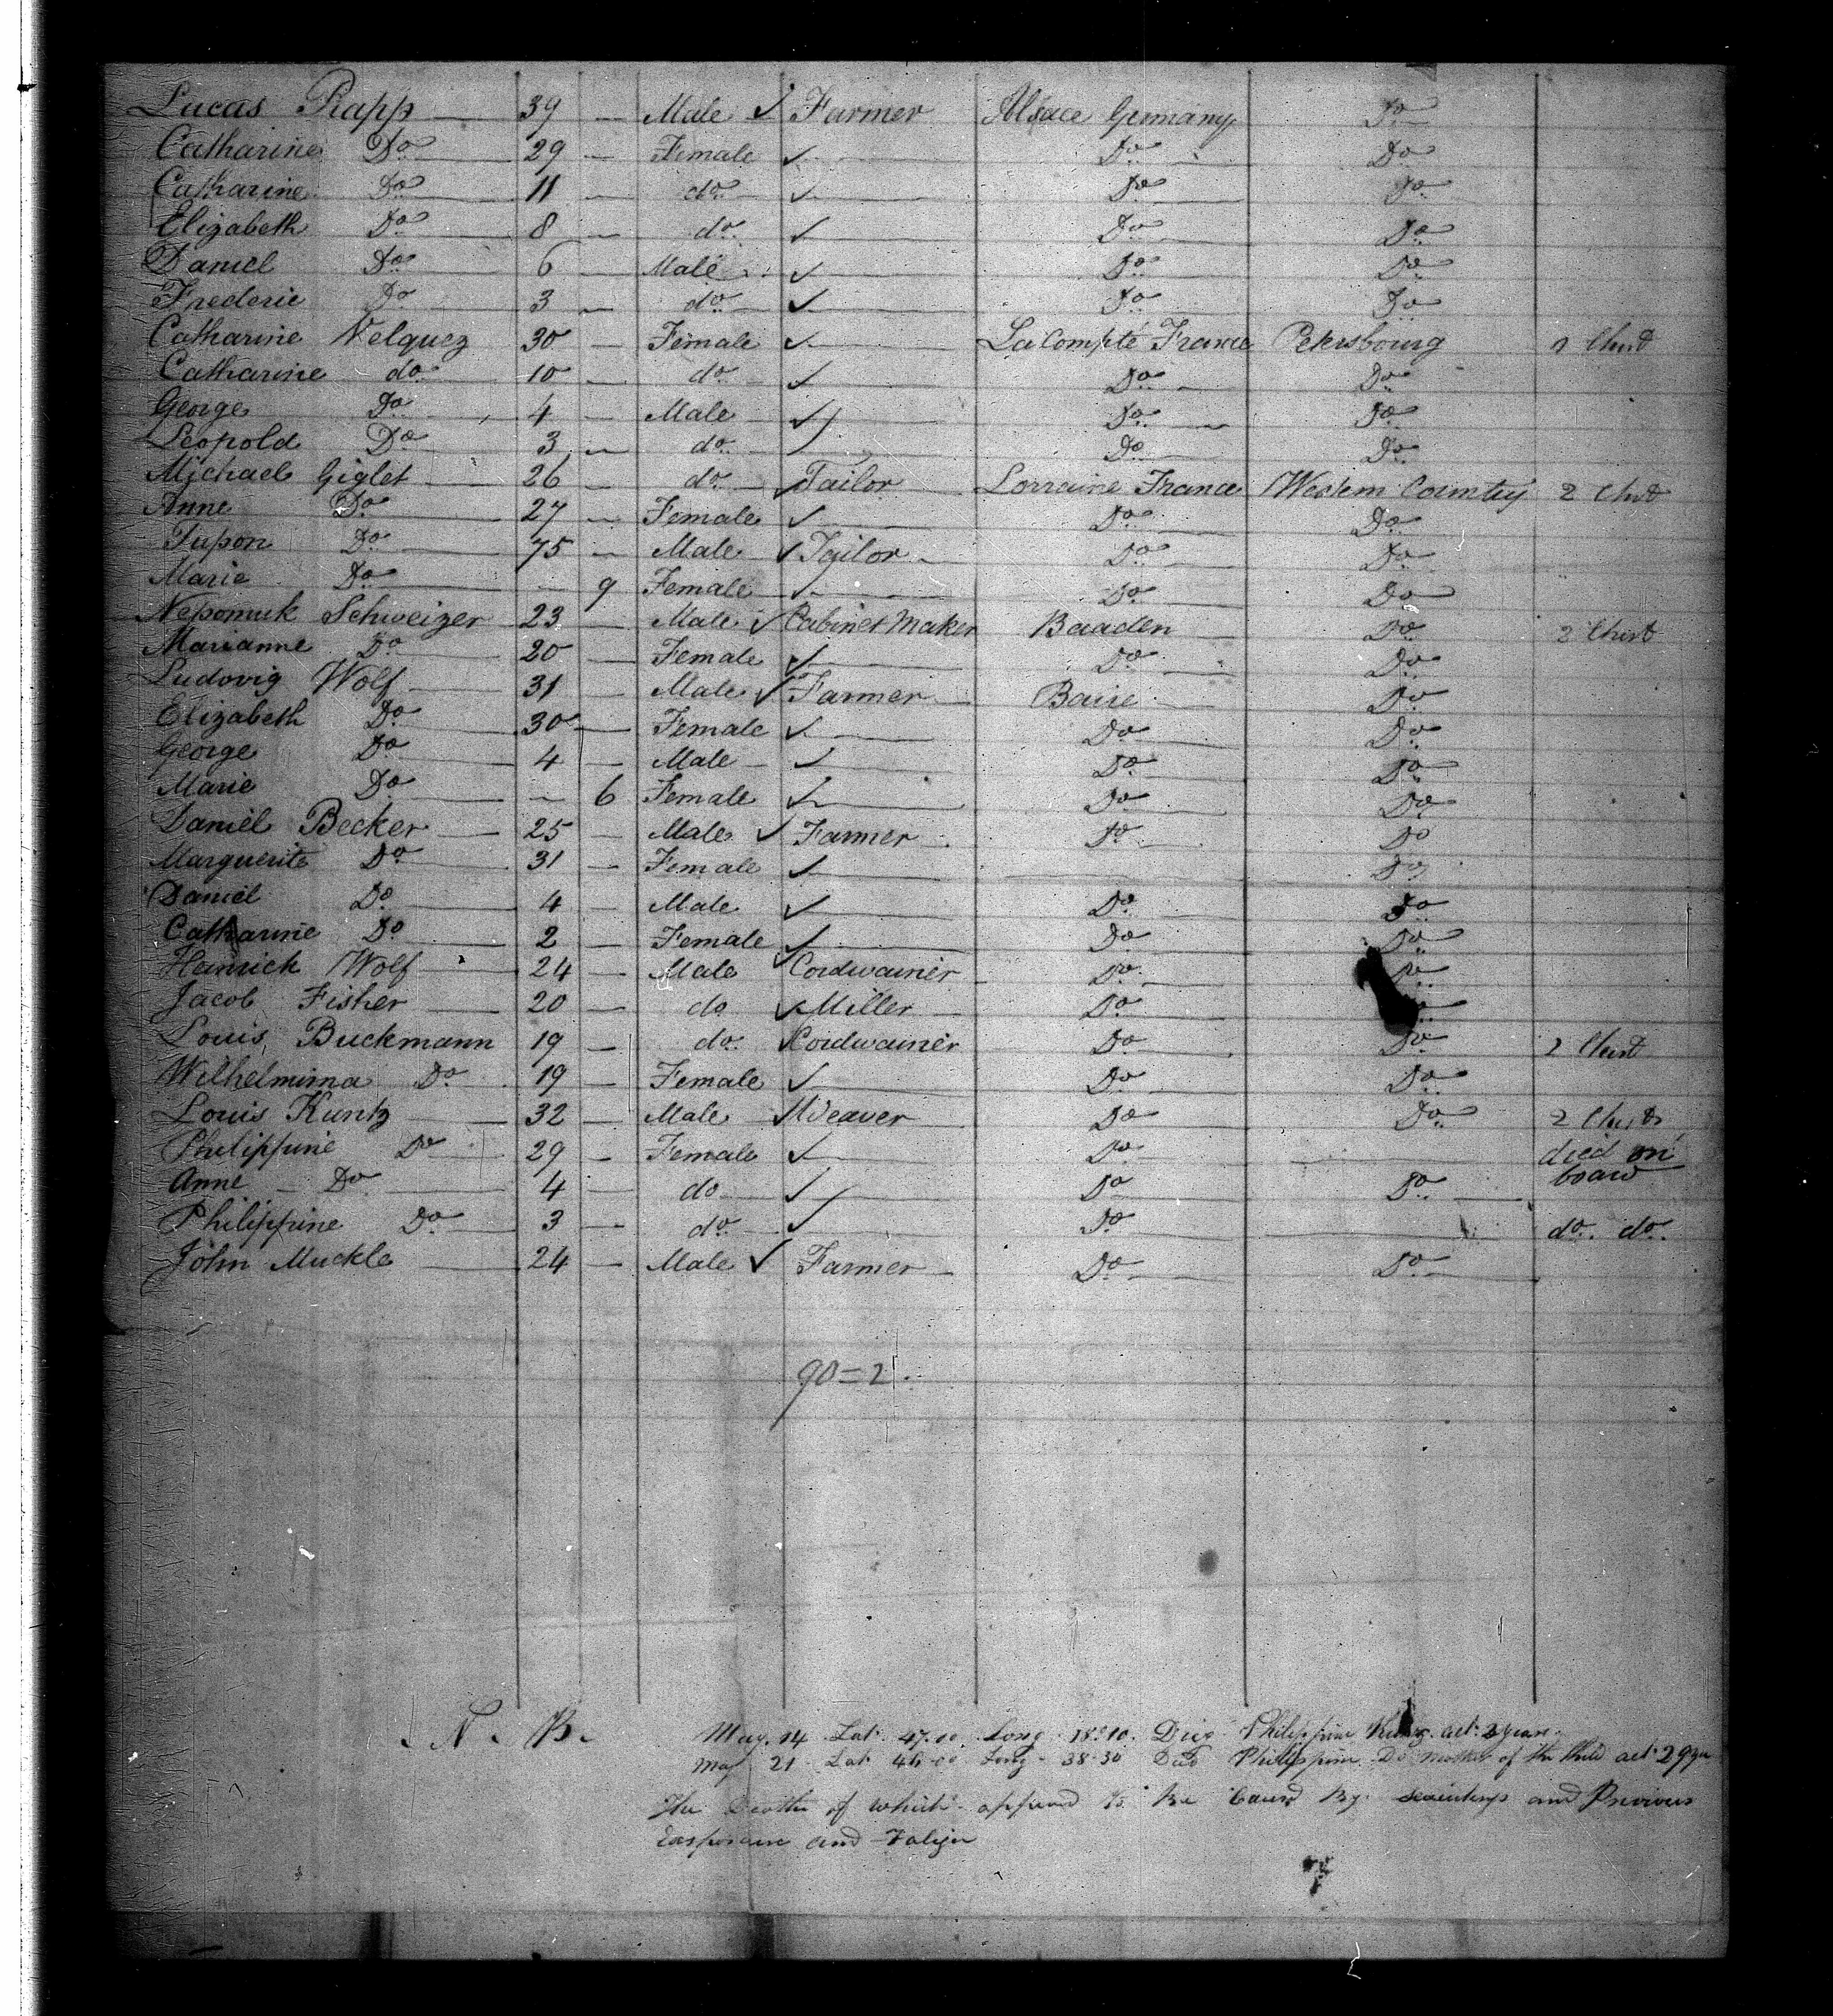 Lucas Rapp 39 Male Farmer Alsace Germany Do
Catharine Do 29 Female Do Do
Catharine Do 11 do Do Do
Elizabeth Do 8 do Do Do
Daniel Do 6 Male Do Do
Frederic Do 3 do Do Do
Catharine Velquez 30 Female La Compté France Petersbourg 1 Chest
Catharine do 10 do Do Do
George Do 4 Male Do Do
Leopold Do 3 do Do Do
Michael Giglet 26 do Tailor Lorraine France Western Country 2 Chest
Anne Do 27 Female Do Do
Do 75 Male Tailor Do Do
Marie Do 9 Female Do Do
Nepomuk Schweizer 23 Male Cabinet Maker Baaden Do 2 Chest
Marianne Do 20 Female Do Do
Ludovig Wolf 31 Male Farmer Do
Elizabeth Do 30 Female Do Do
George Do 4 Male Do Do
Marie Do 6 Female Do Do
Daniel Becker 25 Male Farmer Do Do
Marguerite Do 31 Female Do
Daniel Do 4 Male Do Do
Catharine Do 2 Female Do Do
Heinrich Wolf 24 Male Cordwainer Do Do
Jacob Fisher 20 do Miller Do
Louis Buckmann 19 do Cordwainer Do Do 2 Chest
Wilhelmima Do 19 Female Do Do
Louis Kuntz 32 Male Weaver Do Do 2 Chests
Philippine Do 29 Female Do died on
Anne Do 4 do Do Do board
Philippine Do 3 do Do do do
John Muckle 24 Male Farmer Do Do
90=2
N. B. May 14 Lat 47.00 Long 18.10 Died Philippine Kuntz aet 3 years
May 21 Lat 46-00 Long 38-30 Died Philippine Do mother of the Child aet 29
The Deaths of which appeared to Be Caused By and Previous
Exposure and